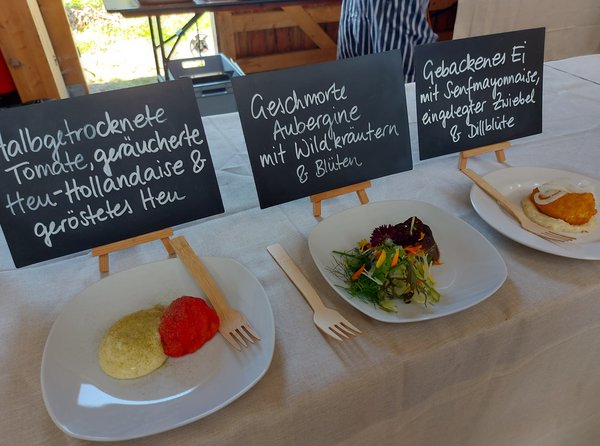 halbgetrocknete
Tomate, geräucherte
Heu-Hollandaise &
geröstetes Heu
Geschmorte
Aubergine
mit Wildkräutern
& Blüten
Gebackenes Ei
mit Senfmayonnaise,
eingelegter Zwiebel
& Dillblüte